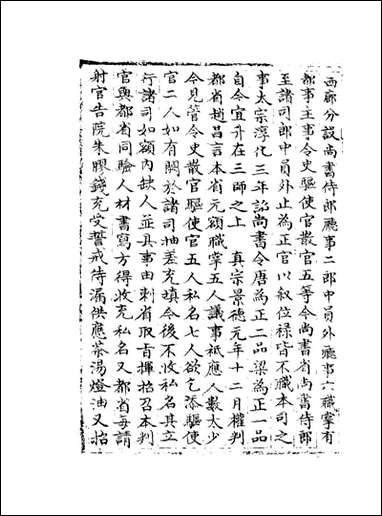 西廊分設尚書侍郎廳事二郎中員外廳事六職掌有
都事主事令史驅使官散官五等令尚書省尚書侍郎
至諸司郎中員外止為正官以叙位禄皆不職本司之
事太宗淳化三年詔尚書令唐為正二品梁為正一品
自今宜升在三師之上 真宗景德元年十二月權判
都省趙昌言本省元額職掌五人議事祇應人數太少
今見管令史散官驅使官五人私名七人欲乞添驅使
官二人如有闕於諸司抽差充填今後不收私名其立
行諸司如額内缺人並具事由刺省取旨揮招召本判
官與都省同驗人材書寫方得收充私名又都省每請
射官告院朱膠錢充受誓戒待漏供應茶湯燈油又招